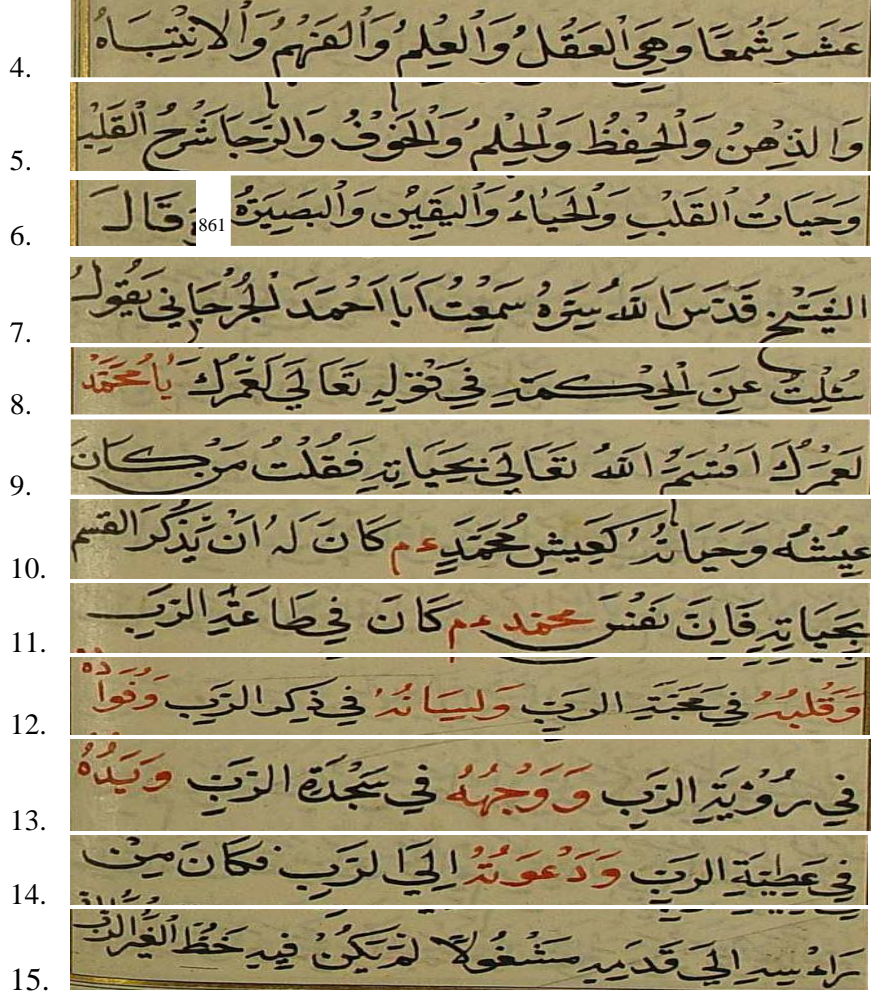 4. عَشَرَ شُمعًا وَهِيَ الْعَقْلُ وَالْعِلْمُ وَالْفَهْمُ وَالْاِنْتِبَاهُ
5. وَالذِهنُ وَالْحِفْظُ وَالْحِلْمُ وَالْخَوْفُ وَالرَّجَا شَرْحُ الْقَلْبِ
6. وَحَيَاتُ الْقَلْبِ وَالْحَيَاءُ وَالْيَقِيْنُ وَالْبَصِيْرَةُ 861 وَقَالَ
7. الشَّيْخ قَدَّسَ اللهُ سِرَّهُ سَمِعْتُ اَبَا اَحْمَدَ الْجُرْجَانِي يَقُولُ
8. سُئِلْتُ عَنِ الْحِكْمَةِ فِي قَوْلِهِ تَعَالَي لَعَمْرُكَ يَا مُحَمَّدُ
9. لَعَمْرُكَ اَقْسَمَ اللهُ تَعَالَي بِحَيَاتِهِ فَقُلْتُ مَنْ كَانَ
10. عِيْشُهُ وَحَيَاتُهُ كَعِيشِ مُحَمَّدٍ ءم كَانَ لَهُ اَنْ يَذْكُرَ القسم
11. بِحَيَاتِهِ فَاِنَّ نَفْسَ محمد ءم كَانَ فِي طَاعَةِ الرَّبِ
12. وَقَلْبُهُ فِي مَحَبَّةِ الرَبِّ وَلِسَانُهُ فِي ذِكرِ الرَّبِ وَفُوادُهُ
13. فِي رُوْيَةِ الرَّبِ وَوَجْهُهُ فِي سَجْدَةِ الرَّبِّ وَيَدُهُ
14. فِي عَطِيَّةِ الرَبِّ وَدَعْوَتُهُ اِلَي الرَّبِ فَكَانَ مِنْ
15. رَاءْسِهِ اِلَي قَدَمِهِ مَشْغُولاً لَمْ يَكُنْ فِيهِ حَظُّ الْغَيْرِ